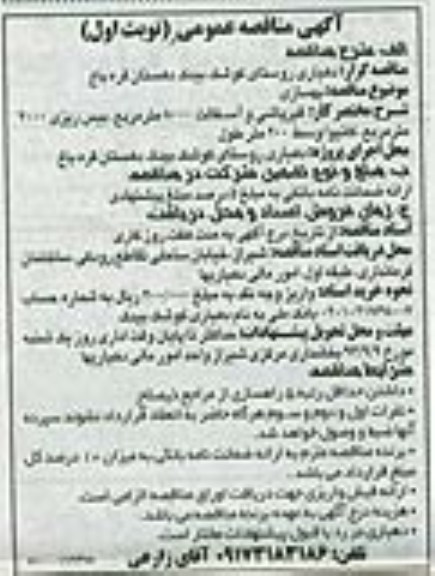 آگهی مناقصه عمومی (نوبت اول)
الف: شرح مناقصه
مناقصه گزار: دهیاری روستای کوشک بیدک دهستان قره باغ
موضوع مناقصه: بهسازی
شرح مختصر کار: قیرپاشی و آسفالت ۱۰۰۰۰ مترمربع، بیس ریزی ۲۰۰۰
مترمربع، کانیوا وسط ۲۰۰ متر طول
محل اجرای پروژه: دهیاری روستای کوشک بیدک دهستان قره باغ
ب: مبلغ و نوع تضمین شرکت در مناقصه
ارائه ضمانت نامه بانکی به مبلغ درصد مبلغ پیشنهادی
ج: زمان فروش اسناد و محل دریافت
اسناد مناقصه: از تاریخ درج آگهی به مدت هفت روز کاری
محل دریافت اسناد مناقصه: شیراز خیابان ساحلی تقاطع رودکی ساختمان
فرمانداری طبقه اول امور مالی دهیاریها
نحوه خرید اسناد: واریز وجه نقد به مبلغ ریال به شماره حساب
بانک ملی به نام دهیاری کوشک بیدک
مهلت و محل تحویل پیشنهادات: حداکثر تا پایان وقت اداری روز یک شنبه
مورخ بخشداری مرکزی شیراز واحد امور مالی دهیاریها
شرایط مناقصه
• داشتن حداقل رتبه ۵ راهسازی از مراجع ذیصلاح
• نفرات اول و دوم و سوم هرگاه حاضر به انعقاد قرارداد نشوند سپرده
آنها ضبط و وصول خواهد شد.
• برنده مناقصه ملزم به ارائه ضمانت نامه بانکی به میزان ۱۰ درصد کل
مبلغ قرارداد می باشد.
• ارائه فیش واریزی جهت دریافت اوراق مناقصه الزامی است.
• هزینه درج آگهی به عهده برنده مناقصه می باشد.
• دهیاری در رد یا قبول پیشنهادات مختار است.
تلفن: ۰۹۱۷۳۱۸۳۱۸۶ آقای زارعی